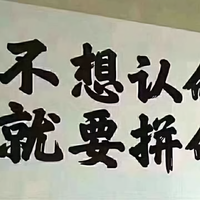 不想认
就要拼